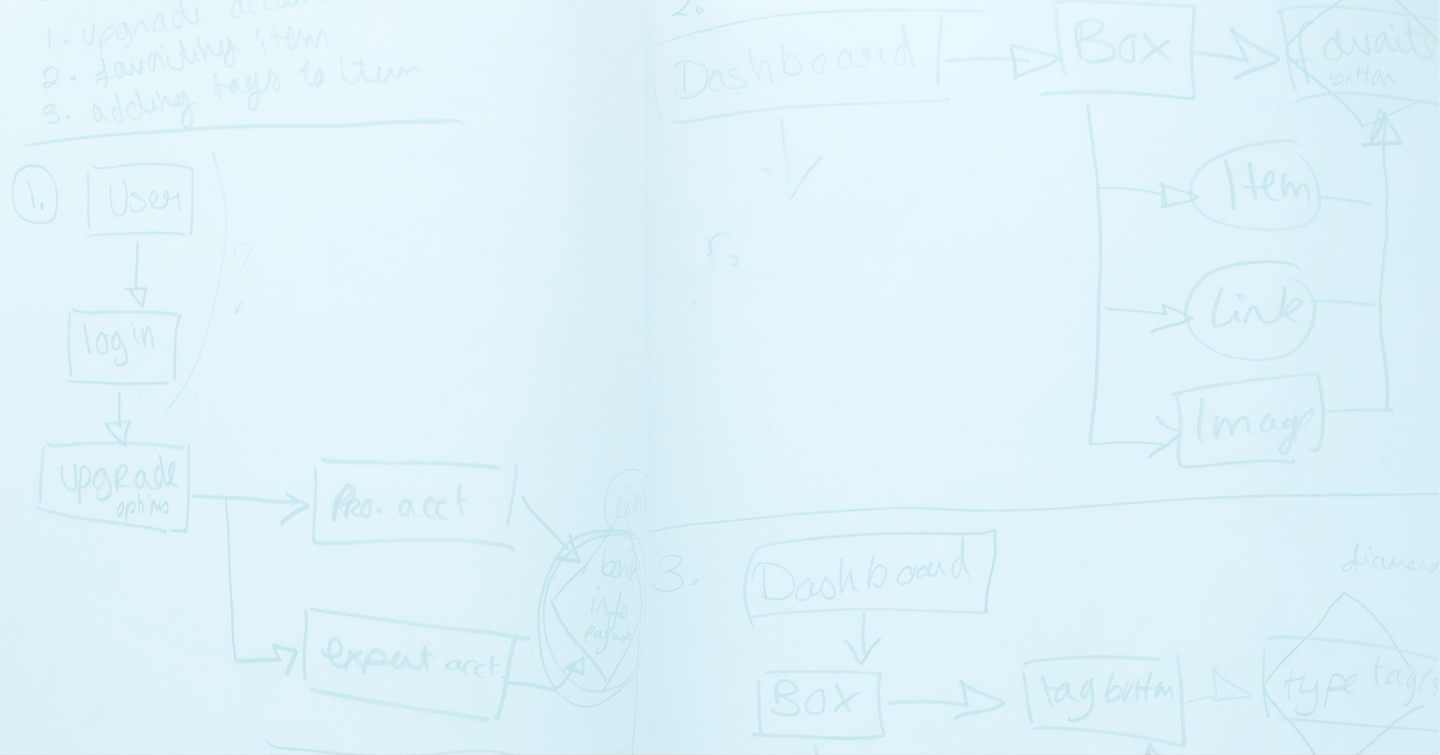 1. Upgrade
2. favoriting item
3. adding tags to item
1.
User
?
login
upgrade
options
Pro. acct
expert acct
bank
info
2.
Dashboard
Box
button
Item
Link
Image
3.
Dashboard
Box
tag button
type tag/s